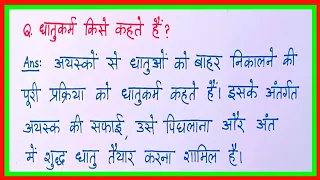 Q. धातुकर्म किसे कहते हैं?
Ans: अयस्कों से धातुओं को बाहर निकालने की
पूरी प्रक्रिया को धातुकर्म कहते हैं। इसके अंतर्गत
अयस्क की सफाई, उसे पिघलाना और अंत
में शुद्ध धातु तैयार करना शामिल है।